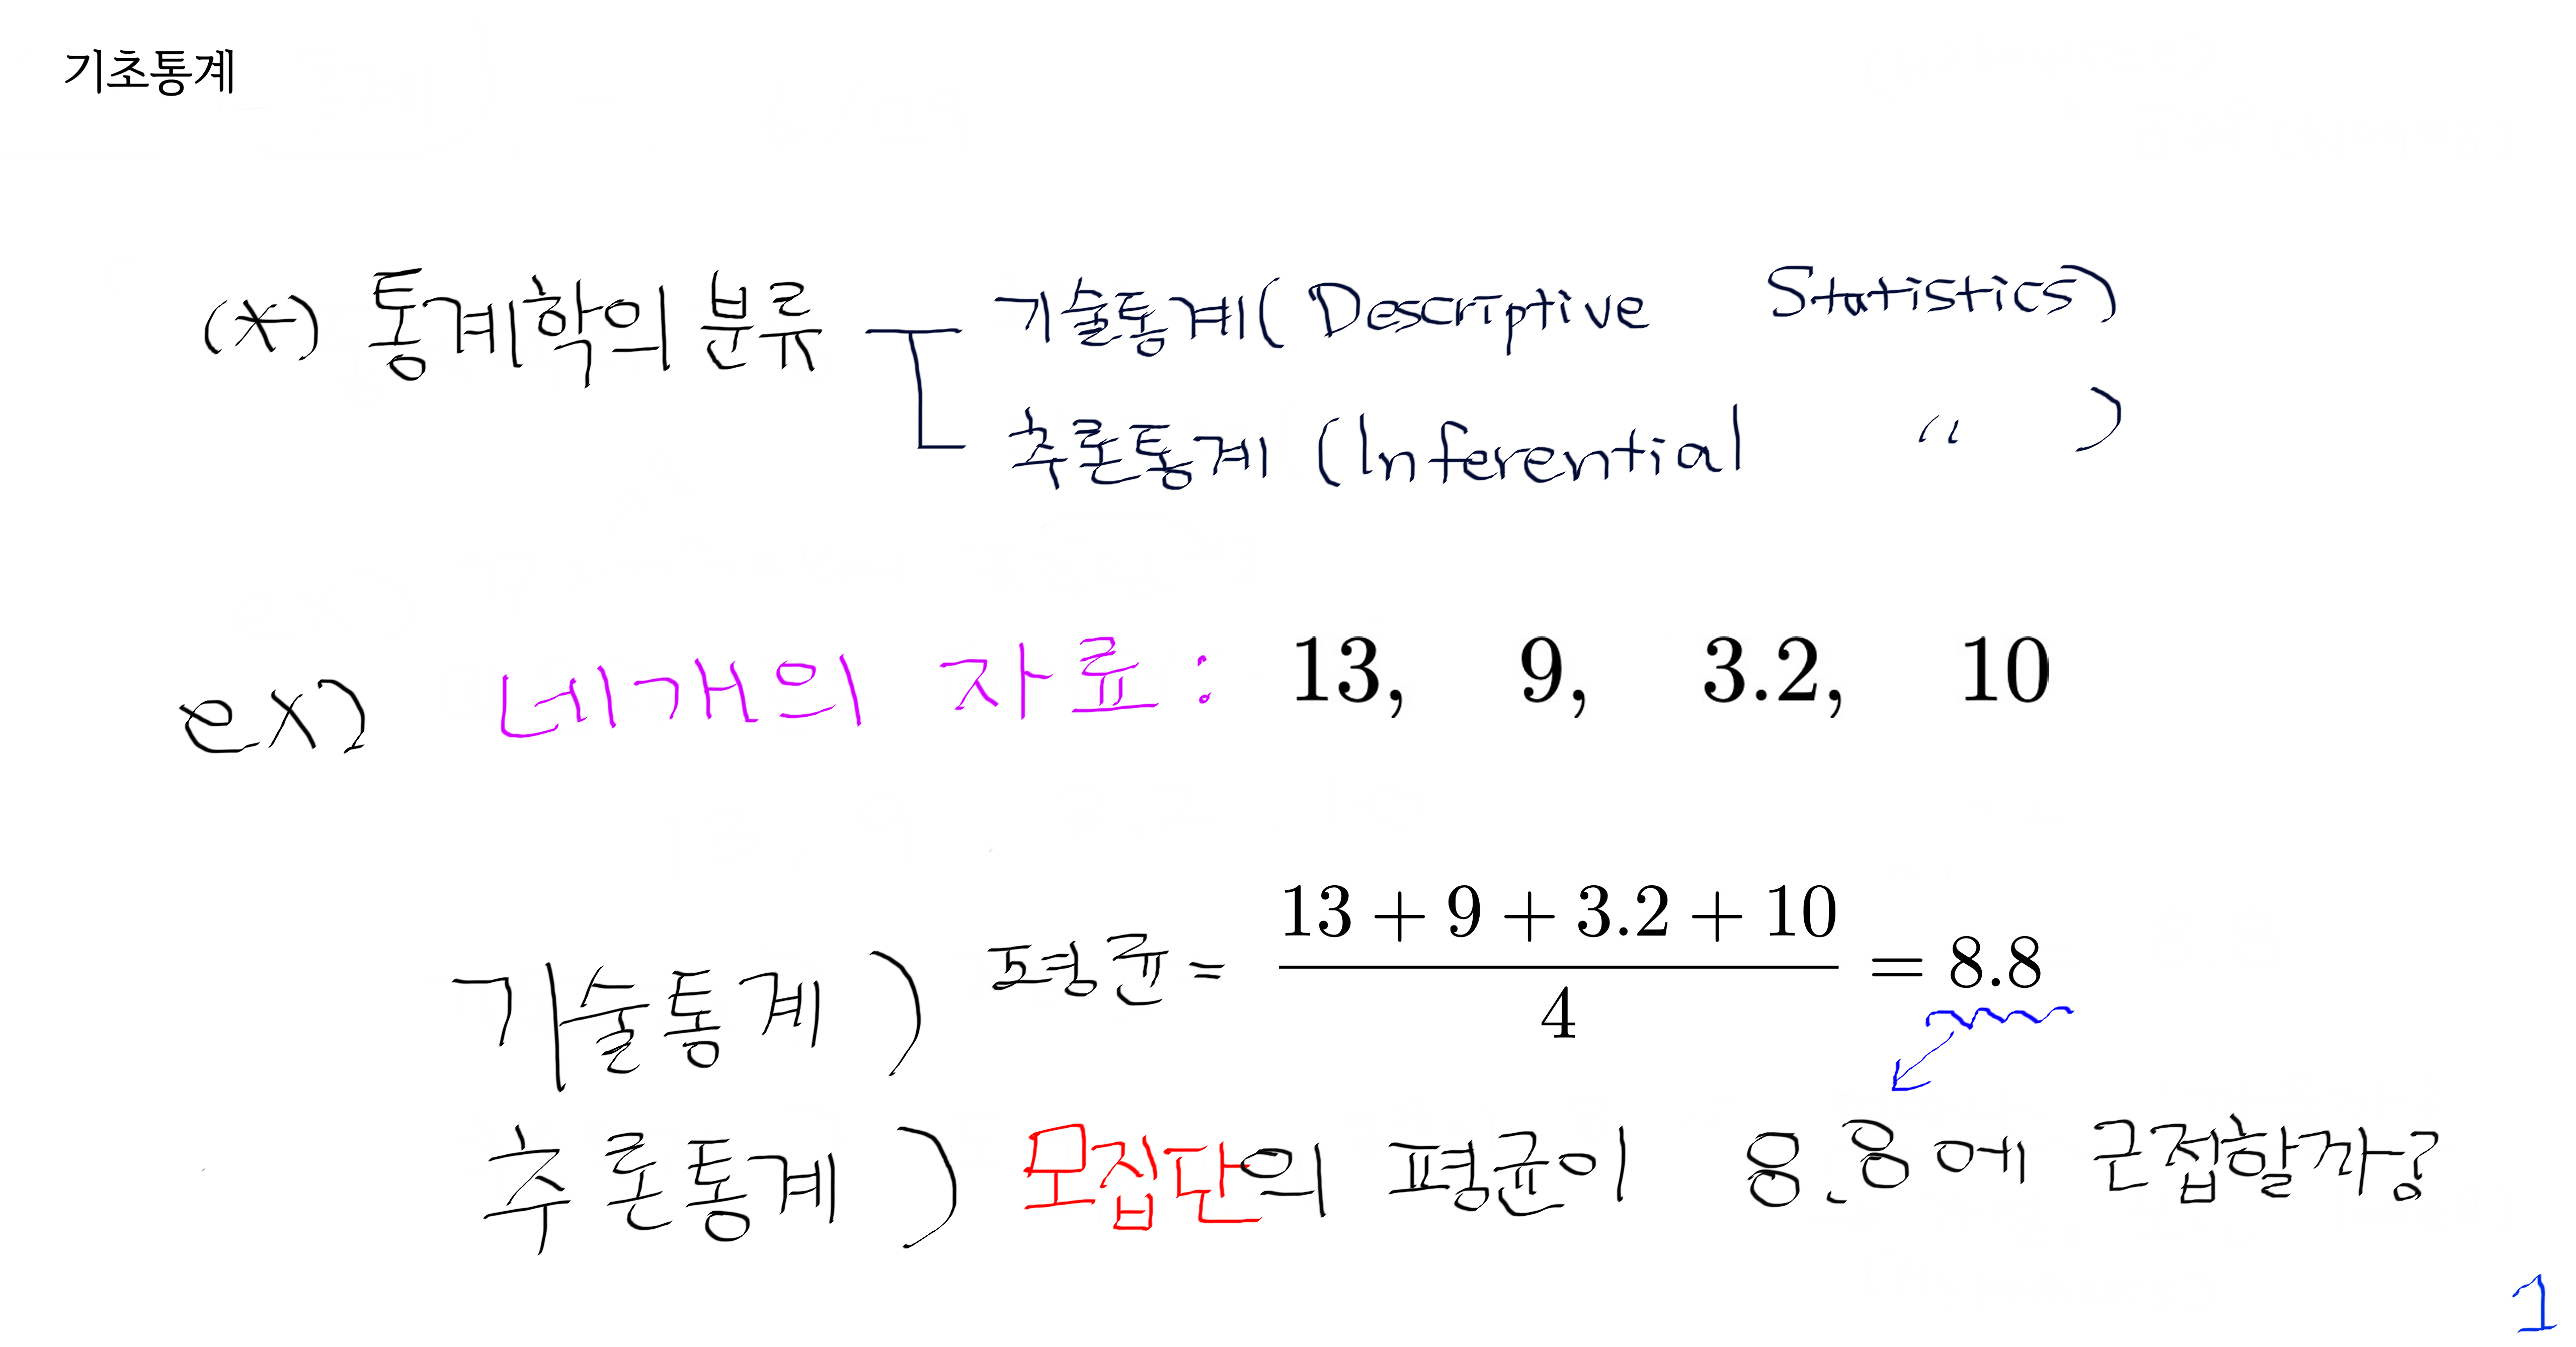 기초통계
(*) 통계학의 분류 기술통계( Descriptive Statistics)
추론통계 (Inferential “ )
ex) 네개의 자료 : 13, 9, 3.2, 10
기술통계 ) 평균 = \frac{13 + 9 + 3.2 + 10}{4} = 8.8
추론통계 ) 모집단의 평균이 8.8에 근접할까?
1